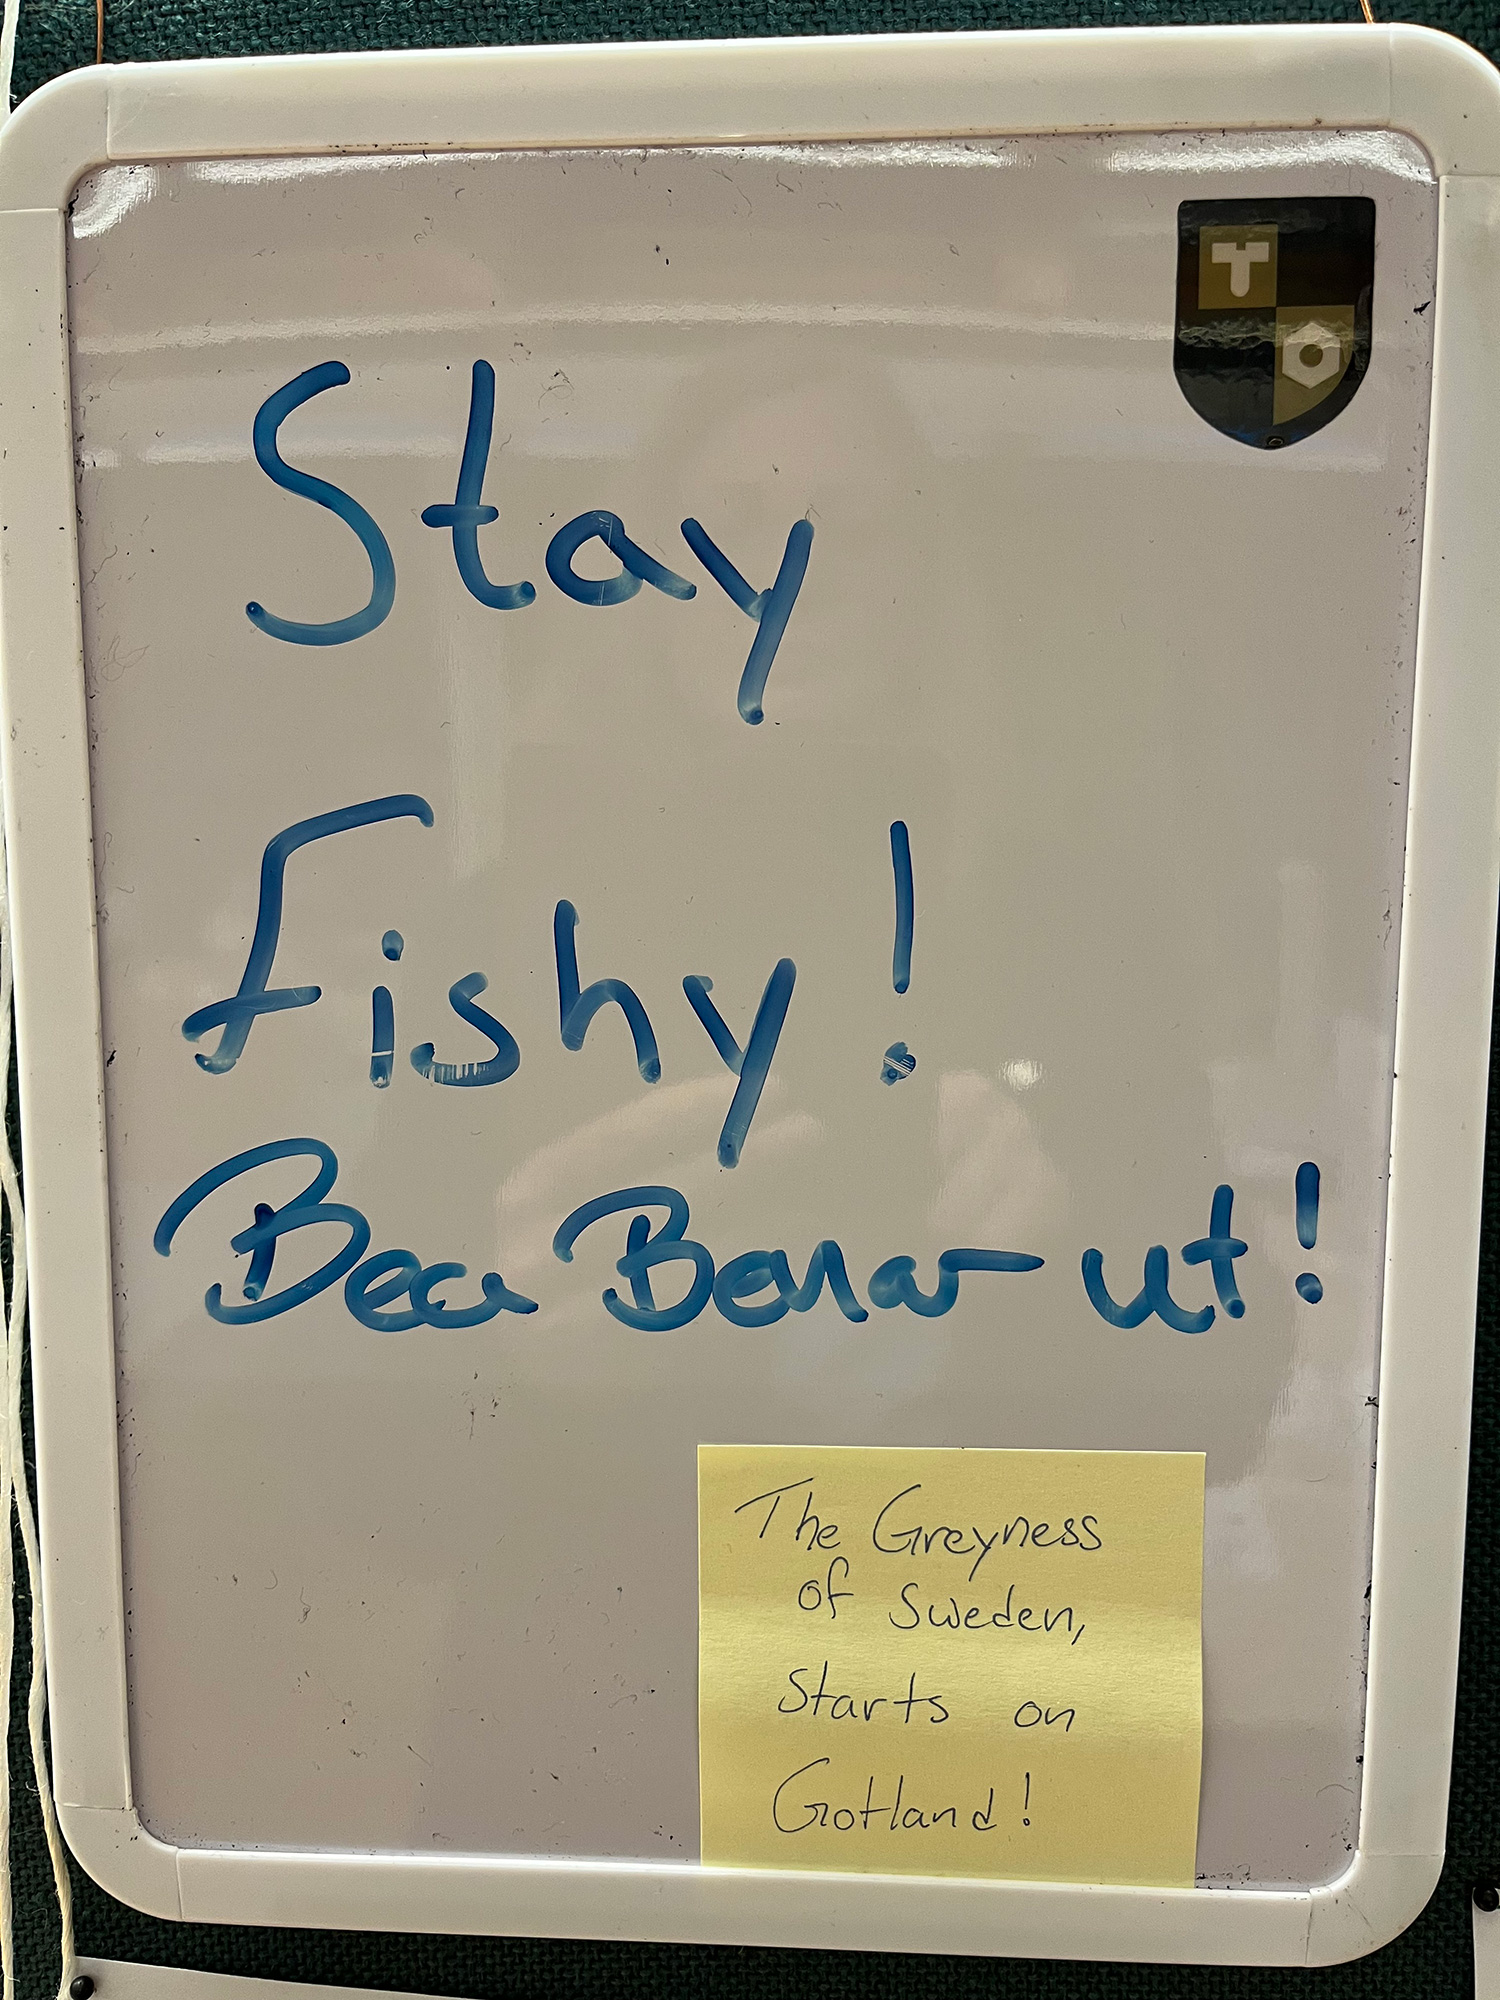 Stay
Fishy!
Bea Benar ut!
The Greyness
of Sweden,
Starts on
Gotland!